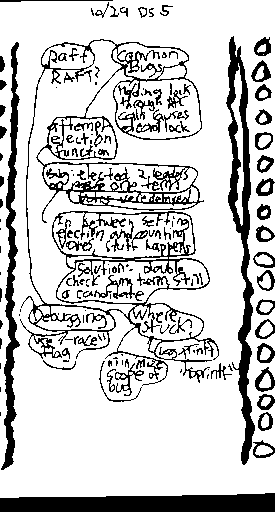 10/29 DS 5
Raft
Common
bugs
RAFT?
Holding lock
through RPC
call causes
deadlock
attempt
election
function
Bug: elected 2 leaders
on one term
Votes were delayed
In between setting
election and counting
votes, stuff happens
Solution: double
check same term, still
a candidate
Debugging
Where
stuck?
use "-race"
flag
Log prints
"dprintf"
minimize
scope of
bug